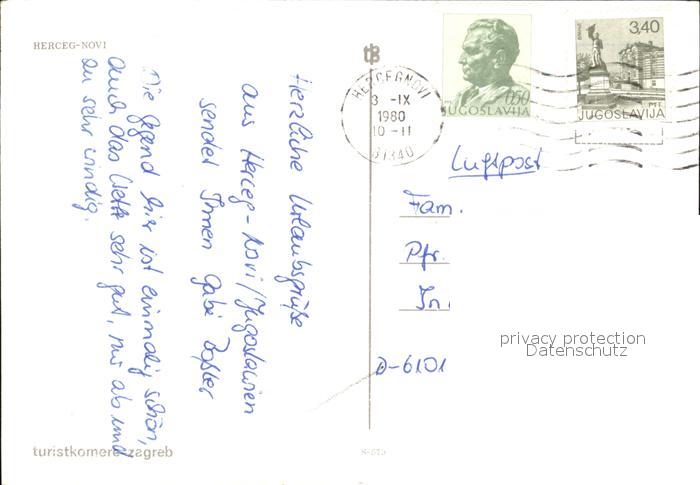 HERCEG-NOVI
Herzliche Urlaubsgrüße
aus Herceg-Novi/Jugoslawien
sendet Ihnen Gabi
Die Gegend hier ist einmalig schön,
auch das Wetter sehr gut, nur ab und
zu sehr windig.
turistkomerc zagreb
S-575
0,50
JUGOSLAVIJA
3,40
JUGOSLAVIJA
PTT
HERCEGNOVI
3 -IX
1980
10 -11
81340
Luftpost
Fam.
Pfr.
In.
D-6101
privacy protection
Datenschutz